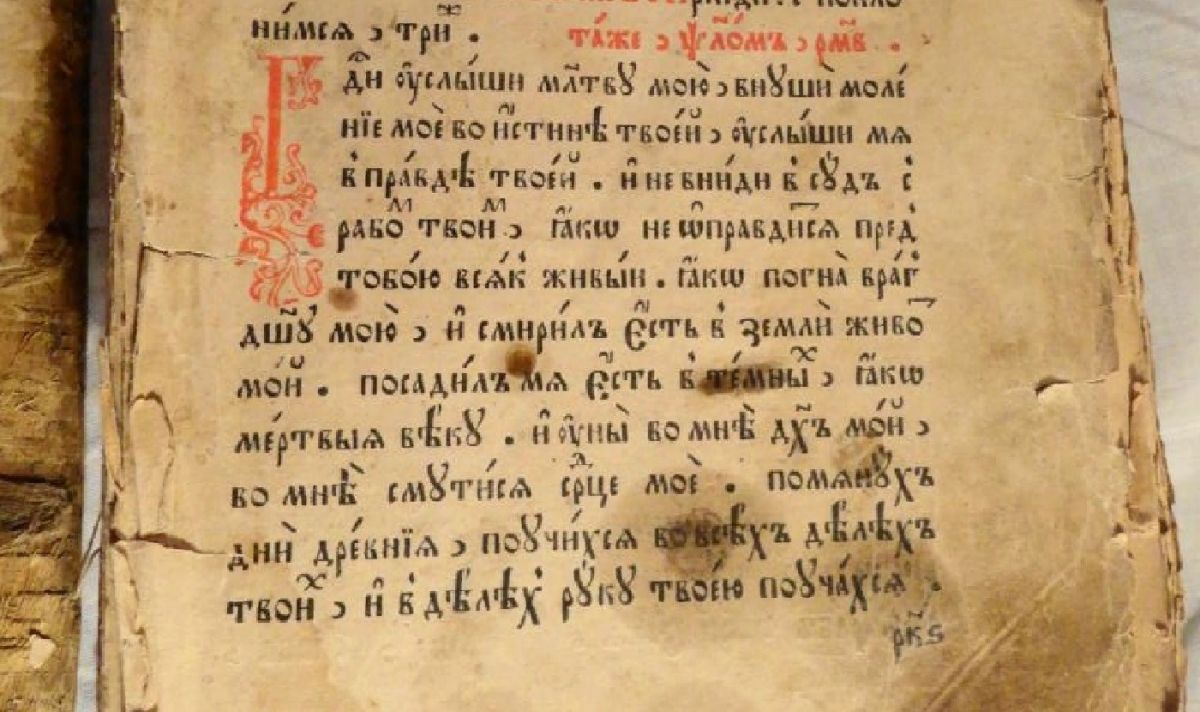 нимсѧ , три҃ж .   та́же , ѱло́мъ , рм҃в .
Гд҇и ᲂу҆слы́ши мл҃тву мою̀ , внꙋшѝ моле́
нїе моѐ во и҆́стинѣ твое́й , ᲂу҆слы́ши мѧ
в̾ пра́вдѣ твое́й . и҆ не вни́ди в̾ сꙋ́дъ с̾
рабоⷨ твоиⷨ , ꙗ҆́кѡ не ѡ҆правди́тсѧ пред̾
тобо́ю всѧ́к̾ живы́и . ꙗ҆́кѡ погна̀ вра́г̾
дш҃ꙋ мою̀ , и҆ смири́лъ є҆́сть в̾ землѝ живоⷮ
мо́й . посади́лъ мѧ є҆́сть в̾ те́мныⷯ , ꙗ҆́кѡ
ме́ртвыѧ вѣ́кꙋ . и҆ ᲂу҆ны̀ во мнѣ̀ дх҃ъ мо́й ,
во мнѣ̀ смꙋти́сѧ срⷣце моѐ . помѧнꙋ́хъ
днѝ дре́внїѧ , поꙋчи́хсѧ во всѣ́хъ дѣ́лѣхъ
твоиⷯ , и҆ в̾ дѣ́лѣх̾ рꙋ́кꙋ твоє́ю поꙋча́хсѧ .
рк҃ѕ